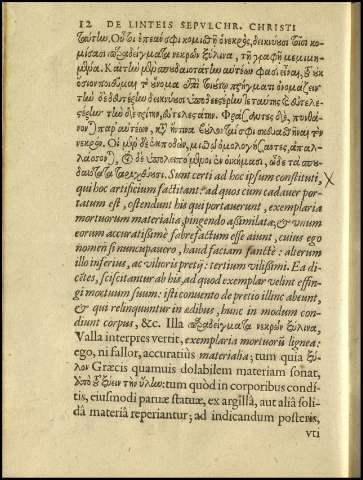 12 DE LINTEIS SEPVLCHR. CHRISTI
ταύτην. Οὗτοι ἐπεάν σφι κομισθῇ ὁ νεκρὸς, δεικνύουσι τοῖσι κο-
μίσασι παραδείγματα νεκρῶν ξύλινα, τῇ γραφῇ μεμιμη-
μένα. Καὶ τὴν μὲν σπουδαιοτάτην αὐτέων φασὶ εἶναι, τοῦ οὐκ
ὅσιον ποιεῦμαι τὸ οὔνομα ἐπὶ τοιούτῳ πρήγματι ὀνομάζειν·
τὴν δὲ δευτέρην δεικνύουσι ὑποδεεστέρην τε ταύτης καὶ εὐτελε-
στέρην· τὴν δὲ τρίτην, εὐτελεστάτην. Φράσαντες δὲ, πυνθά-
νονται παρ' αὐτέων, κατ' ἥντινα βούλονταί σφι σκευασθῆναι τὸν
νεκρόν. Οἱ μὲν δὴ ἐκποδὼν, μισθῷ ὁμολογήσαντες, ἀπαλ-
λάσσονται, οἱ δὲ ὑπολειπόμενοι ἐν οἰκήμασι, ὧδε τὰ σπου-
δαιότατα ταριχεύουσι. Sunt certi ad hoc ipsum constituti,
qui hoc artificium factitant: ad quos cum cadauer por-
tatum est, ostendunt his qui portauerunt, exemplaria
mortuorum materialia, pingendo assimilata; & vnum
eorum accuratißimè fabrefactum esse aiunt, cuius ego
nomen si nuncupauero, haud faciam sanctè: alterum
illo inferius, ac vilioris pretij: tertium vilißimi. Ea di-
ctes, sciscitantur ab his, ad quod exemplar velint effin-
gi mortuum suum: isti conuento de pretio illinc abeunt,
& qui relinquuntur in ædibus, hunc in modum con-
diunt corpus, &c. Illa παραδείγματα νεκρῶν ξύλινα,
Valla interpres vertit, exemplaria mortuorũ lignea:
ego, ni fallor, accuratiùs materialia; tum quia ξύ-
λον Græcis quamuis dolabilem materiam sonat,
ἀπὸ τοῦ ξύειν τὴν ὕλην: tum quòd in corporibus condi-
tis, eiusmodi paruæ statuæ, ex argillâ, aut aliâ soli-
dâ materiâ reperiantur; ad indicandum posteris,
vti